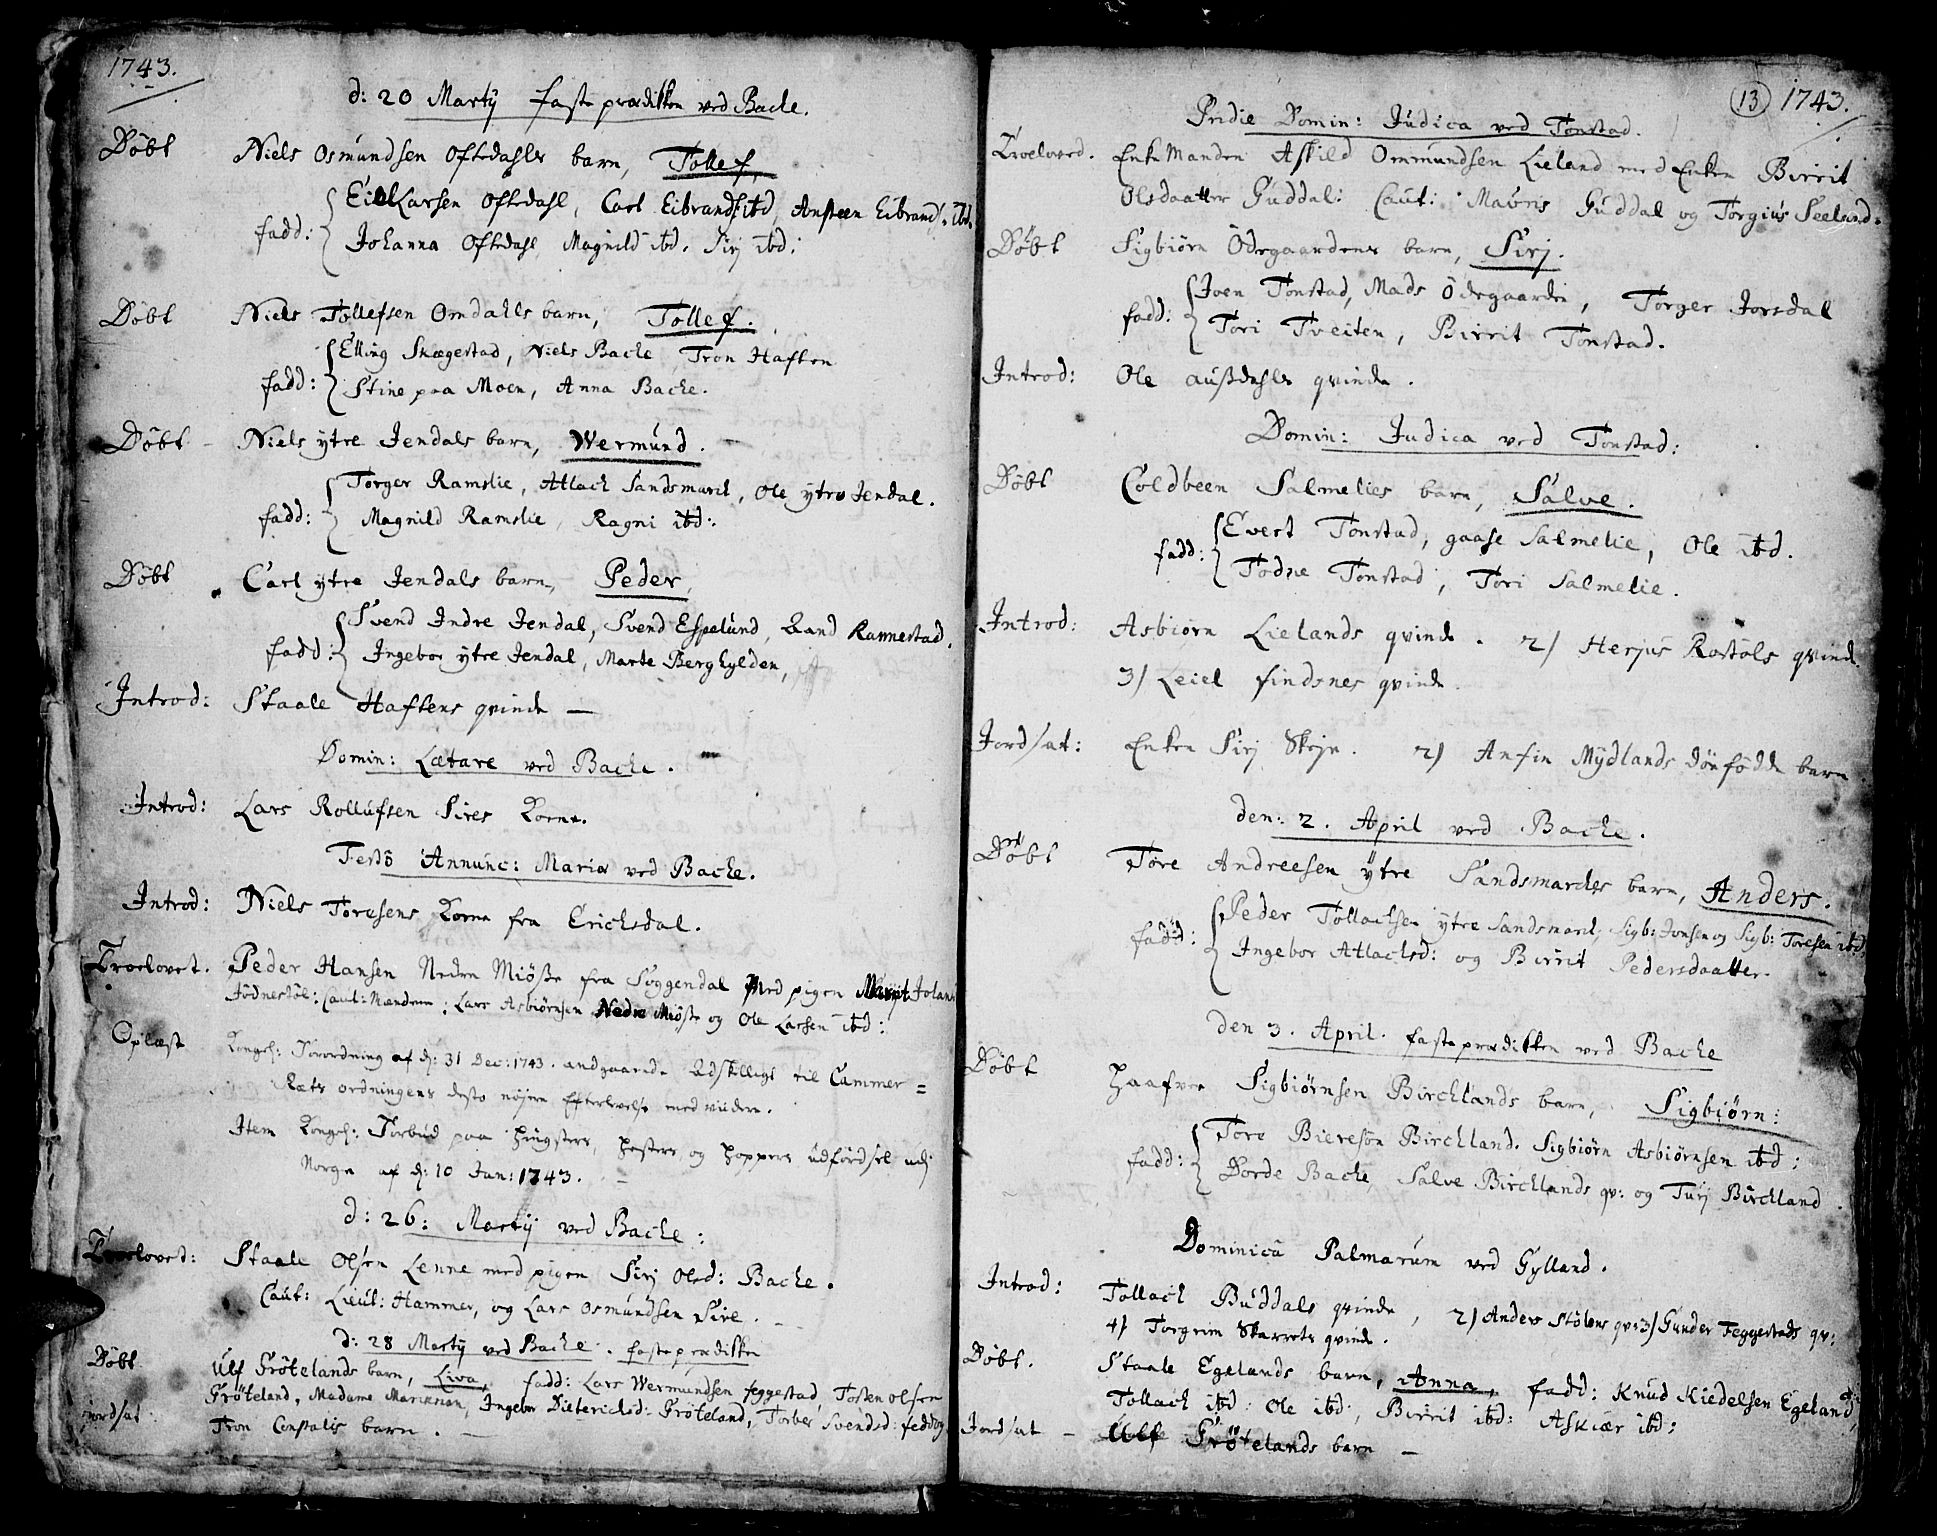 1743.
d: 20 Martij faste prædiken ved Bache.
Döbt Niels Osmundsen Oftedahls barn, Tollef,
fadd: Eiel Larsen Oftedahl, Carl Eibrands: ibd, Ansteen Eibrands: ibd.
Johanna Oftedahl, Magnild ibd. Sirj ibd:
Döbt Niels Tollefsen Omdahls barn, Tollef.
fadd: Elling Skægestad, Niels Bache, Tron Haften
Stine paa Moen, Anna Bache.
Döbt Niels ytre Jendals barn, Wermund.
fadd: Torger Ramslie, Atlach Sandsmark, Ole ytre Jendal.
Magnild Ramslie, Ragni ibd:
Döbt Carl ytre Jendals barn, Peder,
fadd: Svend Indre Jendal, Svend Espelund, Rand Rannestad,
Ingebor ytre Jendal, Marte Berghylden,
Introd: Staale Haftens qvinde —
Domin: Lætare ved Bache.
Introd: Lars Rollufsen Sires Kone.
Festo Annunc: Mariæ ved Bache.
Introd: Niels Toresens Kone fra Erichsdal.
Troelovet. Peder Hansen Nedre Miösse fra Soggendal med pigen Jolans
Födnestöl: Caut: Mændene: Lars Asbiörnsen Nedre Miösse og Ole Larsen ibd:
Oplæst Kongel: Forordning af d: 31 Dec: 1743. andgaaende Adskilligt til Cammer=
Rets ordningens desto nöjere Efterlevelse med videre.
Item Kongel: Forbud paa Hingsters, Hesters og Hoppers udförsel udj
Norge af d: 10 Jan: 1743. —
d: 26: Martij ved Bache:
Troelovet: Staale Olsen Lenne med pigen Sirj Olsd: Bache.
Caut: Lieut: Hammer, og Lars Osmundsen Sire. —
d: 28 Martij ved Bache. faste prædiken
Döbt Ulf Frötelands barn, Liva, fadd: Lars Wermundsen feggestad, Tosten Olsen
Fröteland, Madame Mariman, Ingebor Dietericksd: Fröteland, Torber Svendsd: fedde,
jordsat Tron Constalis barn. —
13 1743.
Pridie Domin: Judica ved Tonstad.
Troeloved. Enke Manden Askild Ommundsen Lieland med Enken Birrit
Olsdaatter Guddal: Caut: Mauris Guddal og Torgius Seeland.
Döbt Sigbiörn Ödegaardens barn, Sirj.
fadd: Joen Tonstad, Mads Ödegaarden, Torger Josdal
Tori Tveiten, Birrit Tonstad.
Introd: Ole Aussdahls qvinde.
Domin: Judica ved Tonstad:
Döbt Coldbeen Salmelies barn, Salve.
fadd: Evert Tonstad, gaase Salmelie, Ole ibd.
Todne Tonstad, Tori Salmelie.
Introd: Asbiörn Lielands qvinde. 2) Herjus Rostöls qvinde.
3) Leiel findsnes qvinde.
Jordsat: Enken Sirj Skeje. 2) Anfin Mydlands dönfödde barn
den: 2. April ved Bache.
Döbt Tore Andreesen ytre Sandsmarkes barn, Anders.
fadd: Peder Tollachsen ytre Sandsmark, Sigb: Jonsen og Sigb: Toresen ibd,
Ingebor Atlachsd: og Birrit Pedersdaatter.
den 3. April. faste prædiken ved Bache
Döbt Haafver Sigbiörnsen Birchlands barn, Sigbiörn:
fadd: Tore Bieresön Birchland. Sigbiörn Asbiörnsen ibd;
Dorde Bache, Salve Birchlands qv: og Turj Birchland.
Dominica Palmarum ved Gylland.
Introd: Tollach Buddals qvinde, 2) Anders Stölens qv: 3) Gunder Feggestads qv:
4) Torgrim Skarrets qvinde.
Döbt. Staale Egelands barn, Anna, fadd: Knud Kiedelsen Egeland,
Tollach ibd: Ole ibd: Birrit ibd: Askiær ibd:
Jordsat — Ulf Frötelands barn —